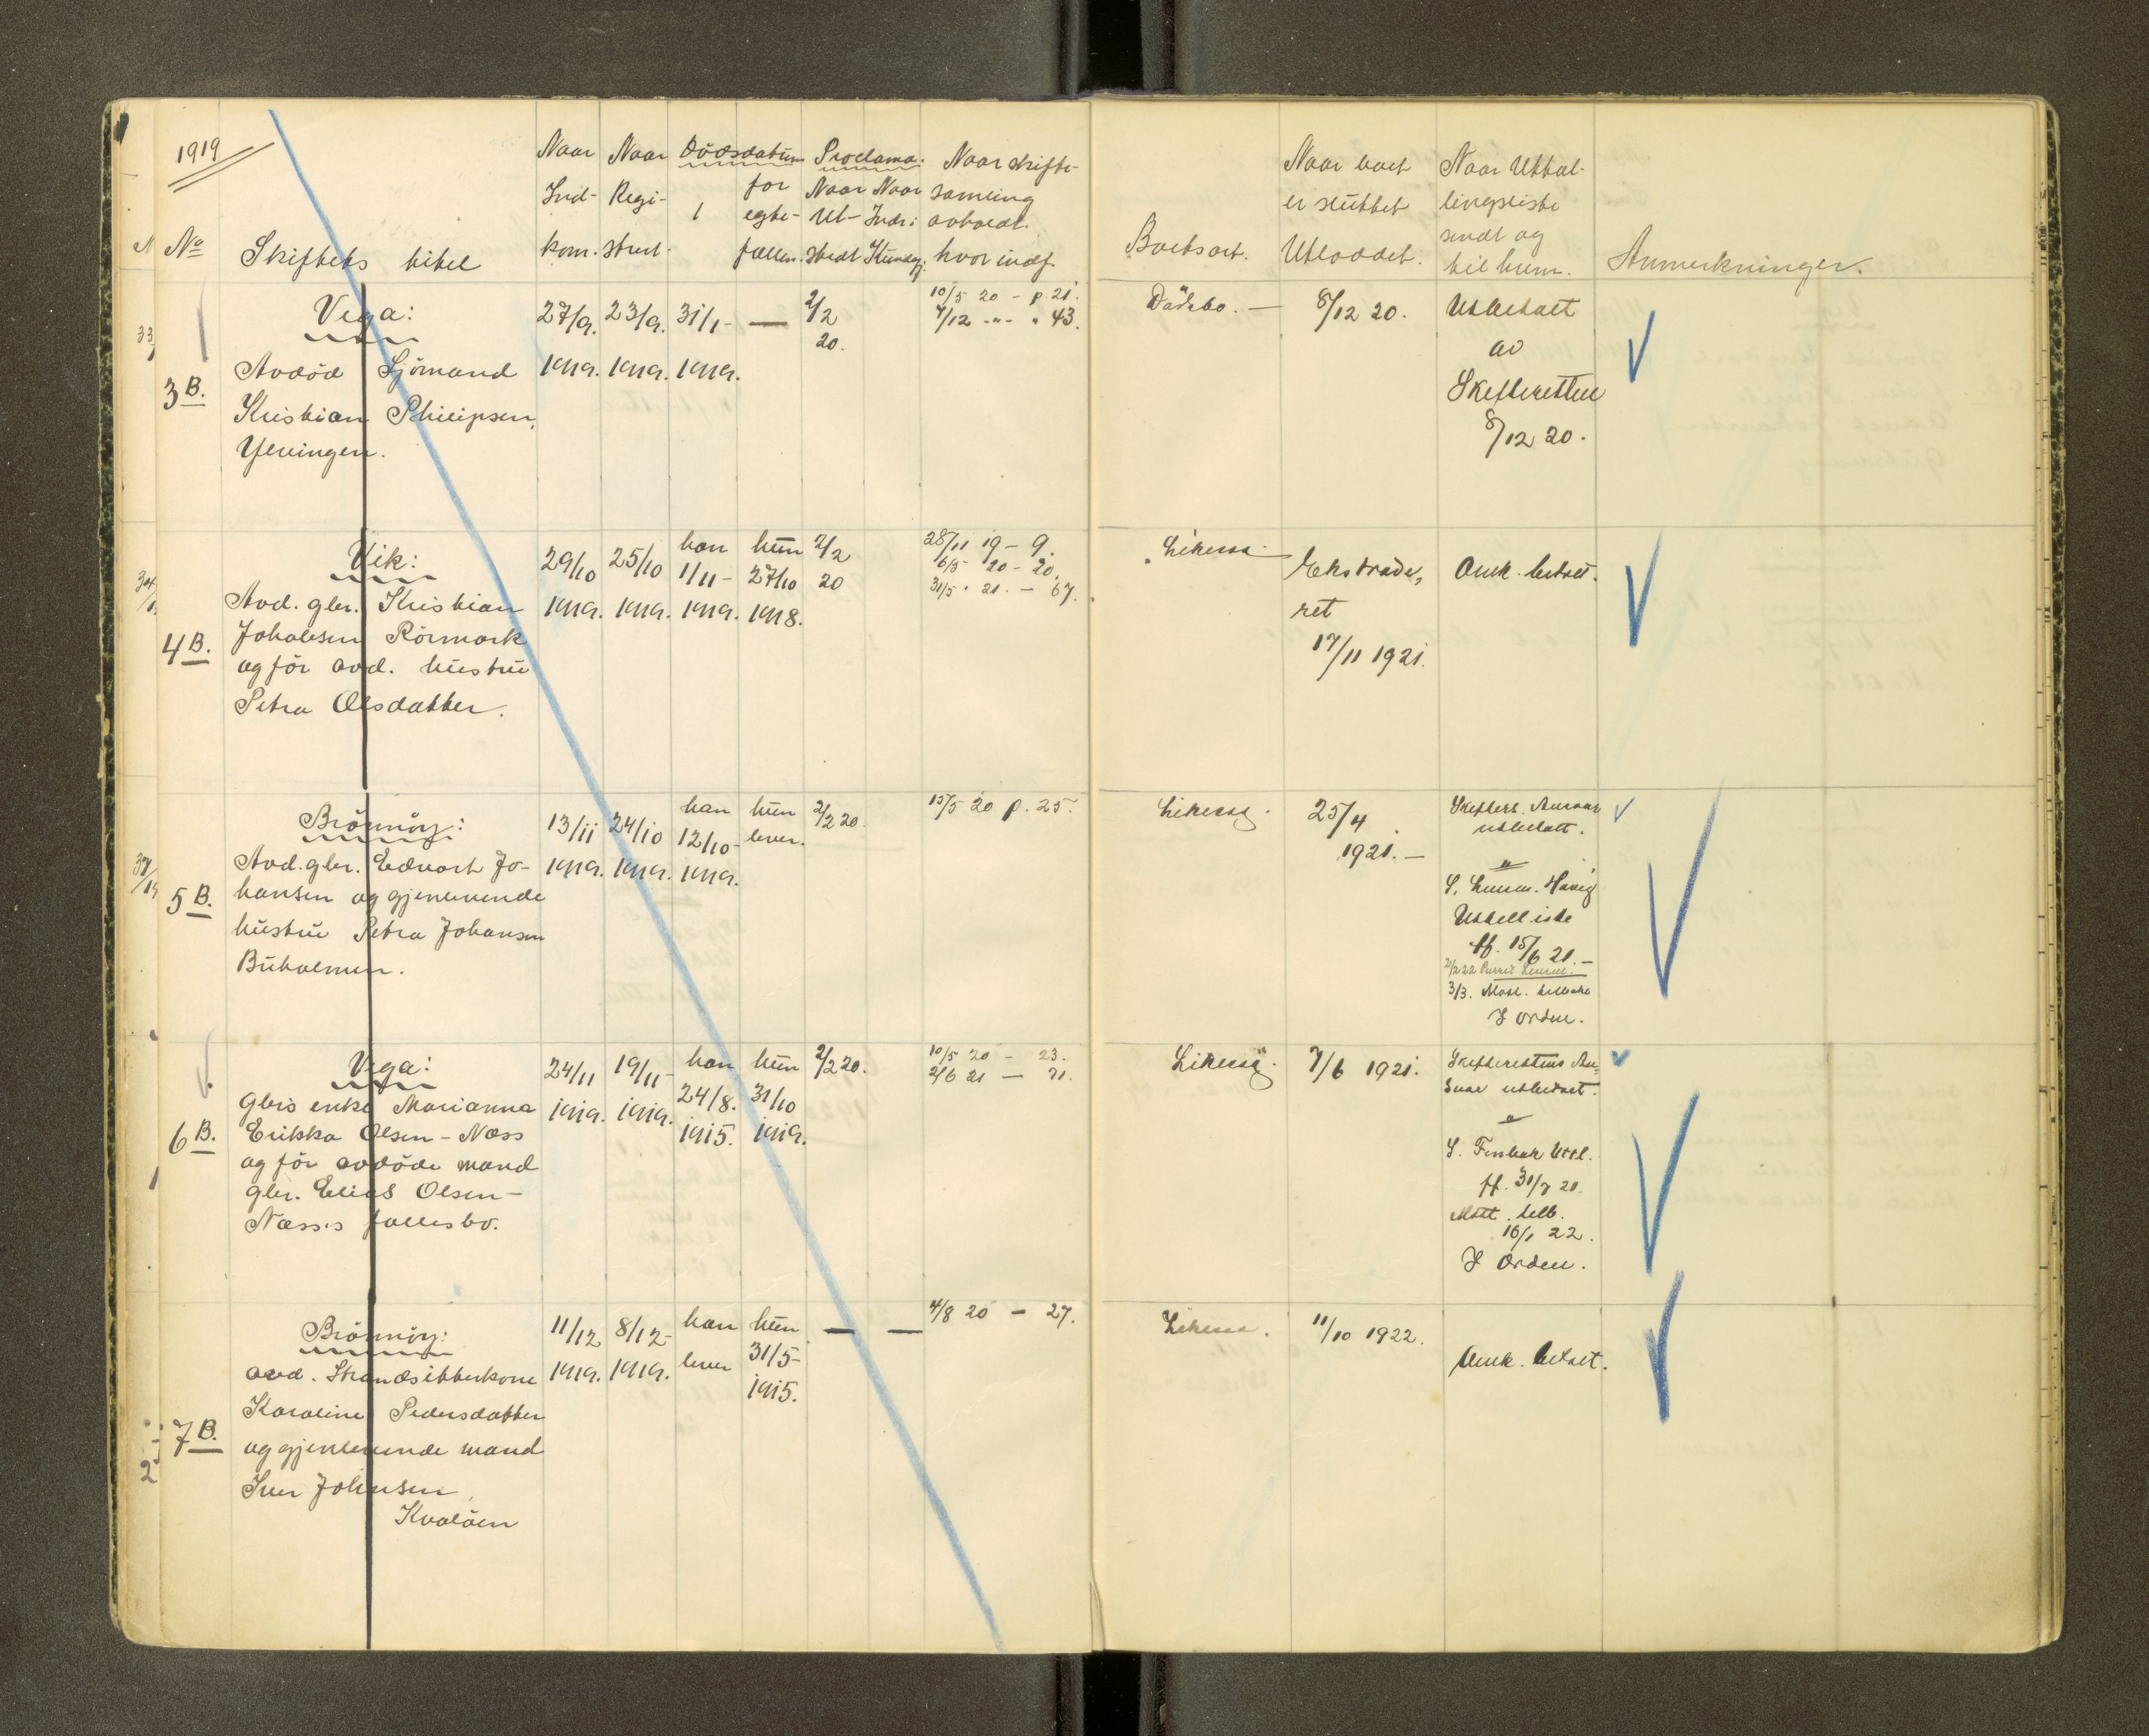 1919
No
Skiftets titel
Naar Ind- kom.
Naar Regi- strert.
Dödsdatum
1
for egte- fællen.
Proclama.
Naar Ut- stedt
Naar Indr: Kundg:
Naar skifte- samling avholdt. hvor indf.
Boetsart.
Naar boet er sluttet Utloddet.
Naar Utbeta- lingsliste sendt og til hvem.
Anmerkninger.
3 B.
Vega:
Avdöd Sjömand
Kristian Philipsen,
Ylvingen.
27/9. 1919.
23/9. 1919.
31/1- 1919.
—
2/2 20.
10/5 20 - p. 21.
7/12 -"- " 43.
Dödsbo. —
8/12 20.
Utbetalt
av
Skifteretten
8/12 20.
4 B.
Vik:
Avd. gbr. Kristian
Johansen Rörmark
og för avd. hustru
Petra Olsdatter.
29/10 1919.
25/10 1919.
han 1/11- 1919.
hun 27/10 1918.
2/2 20
28/11 19 - 9.
6/5 20 - 20.
31/5 " 21. - 67.
Likesaa.
Ekstrade,
ret
17/11 1921.
Omk. betalt.
5 B.
Brönnöy:
Avd. gbr. Edvart Jo-
hansen og gjenlevende
hustru Petra Johansen
Buholmen.
13/11 1919.
24/10 1919.
han 12/10- 1919.
hun lever.
2/2 20.
15/5 20 p. 25.
Likesaa.
25/4
1921. —
Skifterts. Ansvar
utbetalt.
"
L. Lensm. Havig
Utbetlliste
ff. 15/6 21. —
2/2 22 Purret Lensm.
3/3. Mott. tilbake
I orden.
6 B.
Vega:
Gbrs enke Marianna
Erikka Olsen - Næss
og för avdöde mand
gbr. Elias Olsen -
Næss's fællesbo.
24/11 1919.
19/11- 1919.
han 24/8. 1915.
hun 31/10 1919.
2/2 20.
10/5 20 - 23.
2/6 21 — 71.
Likesaa.
7/6 1921.
Skifterettens An-
svar utbetalt.
"
L. Utbl.
ff. 30/7 21.
Mott. tilb.
16/1 22.
I Orden.
7 B.
Brönnöy:
avd. Strandsitterkone
Karoline Pedersdatter
og gjenlevende mand
Iver Johnsen,
Kvalöen
11/12 1919.
8/12- 1919.
han lever
hun 31/5- 1915.
—
—
4/8 20 — 27.
Likesaa.
11/10 1922.
Omk. betalt.